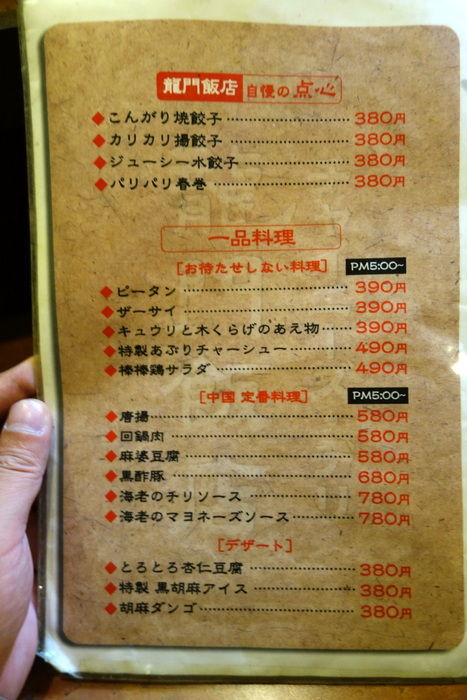 龍門飯店 自慢の点心
◆こんがり焼餃子 380円
◆カリカリ揚餃子 380円
◆ジューシー水餃子 380円
◆パリパリ春巻 380円
一品料理
[お待たせしない料理] PM5:00~
◆ピータン 390円
◆ザーサイ 390円
◆キュウリと木くらげのあえ物 390円
◆特製あぶりチャーシュー 490円
◆棒棒鶏サラダ 490円
[中国 定番料理] PM5:00~
◆唐揚 580円
◆回鍋肉 580円
◆麻婆豆腐 580円
◆黒酢豚 680円
◆海老のチリソース 780円
◆海老のマヨネーズソース 780円
[デザート]
◆とろとろ杏仁豆腐 380円
◆特製 黒胡麻アイス 380円
◆胡麻ダンゴ 380円